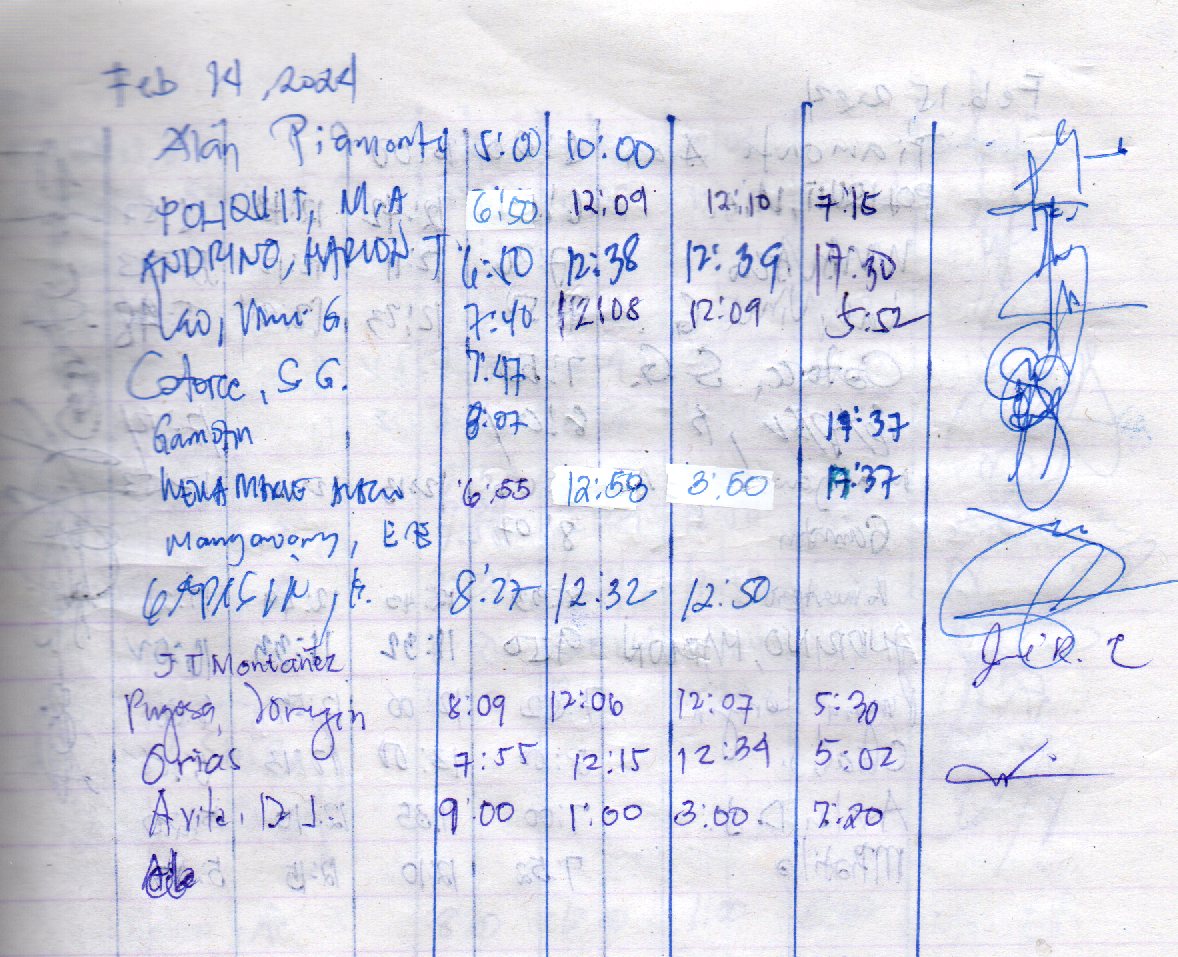 Feb 14, 2024
Alan Piamonte 5:00 10:00
POLIQUIT, M.A 6:50 12:09 12:10 7:15
ANDRINO, MARION J 6:10 12:38 12:39 17:30
Lao, G. 7:40 12:08 12:09 5:52
Cotorce, S G. 7:47
Gamotin 8:07 17:37
MARIE 6:55 12:58 3:50 17:37
8:27 12:32 12:50
F J Montañez
Pugosa, Jorygin 8:09 12:06 12:07 5:30
Orias 7:55 12:15 12:34 5:02
Avita, D J. 9:00 1:00 3:00 7:20